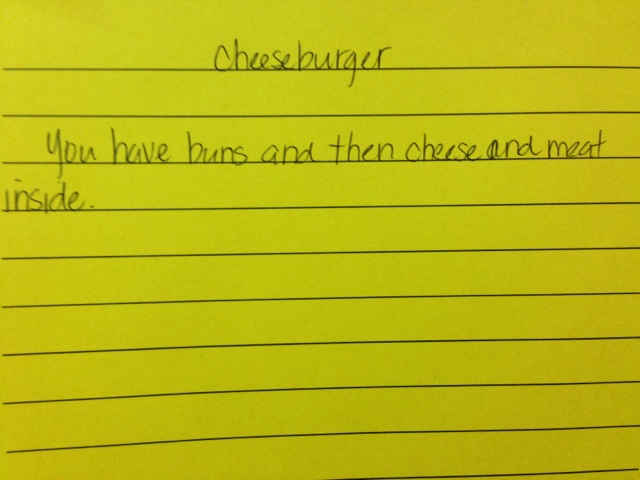 Cheeseburger
You have buns and then cheese and meat
inside.